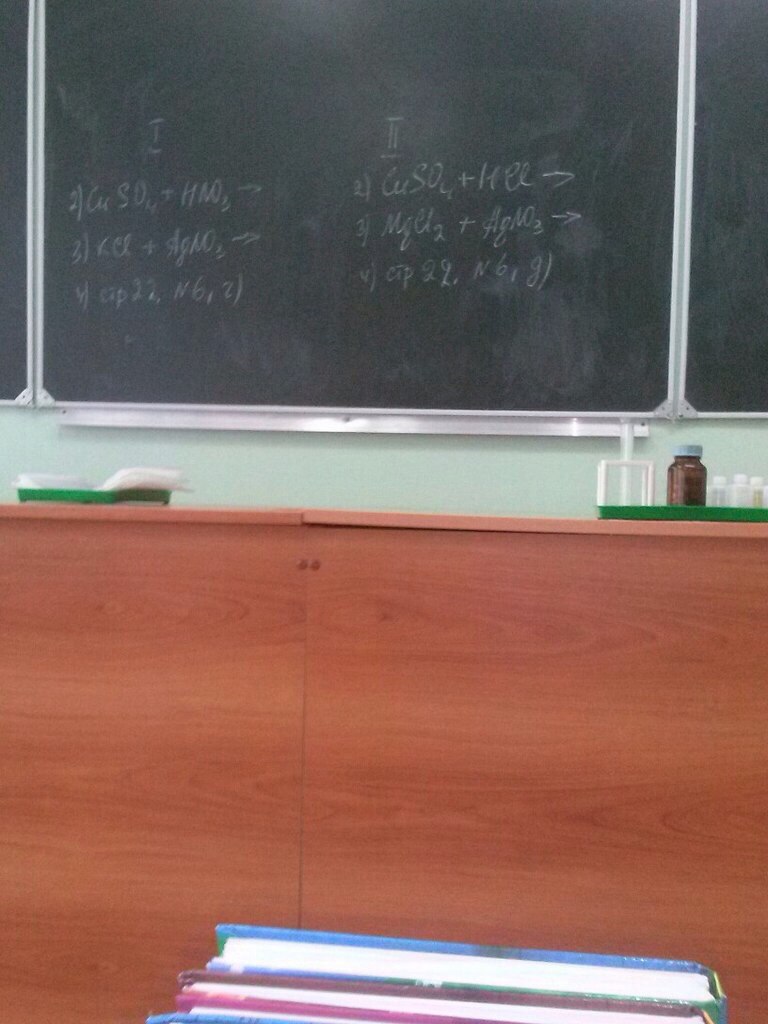 I
2) CuSO₄ + HNO₃ →
3) KCl + AgNO₃ →
4) стр 22, №6, г)
II
2) CuSO₄ + HCl →
3) MgCl₂ + AgNO₃ →
4) стр 22, №6, д)